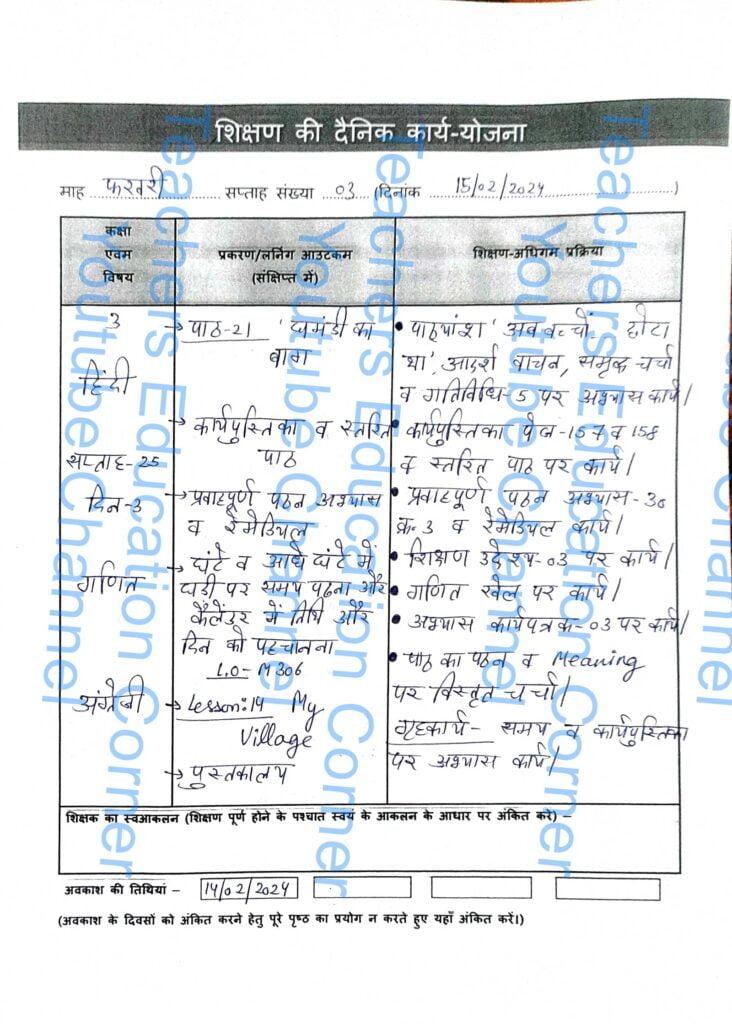 शिक्षण की दैनिक कार्य-योजना
माह फरवरी सप्ताह संख्या 03 (दिनांक 15/02/2024)
कक्षा
एवम
विषय
प्रकरण/लर्निंग आउटकम
(संक्षिप्त में)
शिक्षण-अधिगम प्रक्रिया
3
हिंदी
सप्ताह-25
दिन-3
गणित
अंग्रेजी
→ पाठ-21 'घमंडी का
बाग
→ कार्यपुस्तिका व स्तरित
पाठ
→ प्रवाहपूर्ण पठन अभ्यास
व रेमेडियल
→ घंटे व आधे घंटे में
घडी पर समय पढना और
कैलेंडर में तिथि और
दिन को पहचानना
L.O- M306
→ Lesson:14 My
Village
→ पुस्तकालय
• पाठ्यांश 'अब बच्चों
था' आदर्श वाचन, समूह चर्चा
व गतिविधि-5 पर अभ्यास कार्य।
• कार्यपुस्तिका पेज-157 व 158
व स्तरित पाठ पर कार्य।
• प्रवाहपूर्ण पठन अभ्यास-30
क्र-3 व रेमेडियल कार्य।
• शिक्षण उद्देश्य-03 पर कार्य।
• गणित खेल पर कार्य।
• अभ्यास कार्यपत्रक-03 पर कार्य।
• पाठ का पठन व Meaning
पर विस्तृत चर्चा।
गृहकार्य- समय व कार्यपुस्तिका
पर अभ्यास कार्य।
शिक्षक का स्वआकलन (शिक्षण पूर्ण होने के पश्चात स्वयं के आकलन के आधार पर अंकित करे) –
अवकाश की तिथियां – 14/02/2024
(अवकाश के दिवसों को अंकित करने हेतु पूरे पृष्ठ का प्रयोग न करते हुए यहाँ अंकित करें।)
Teachers Education Corner
Youtube Channel
Teachers Education Corner
Youtube Channel
Teachers Education Corner
Youtube Channel